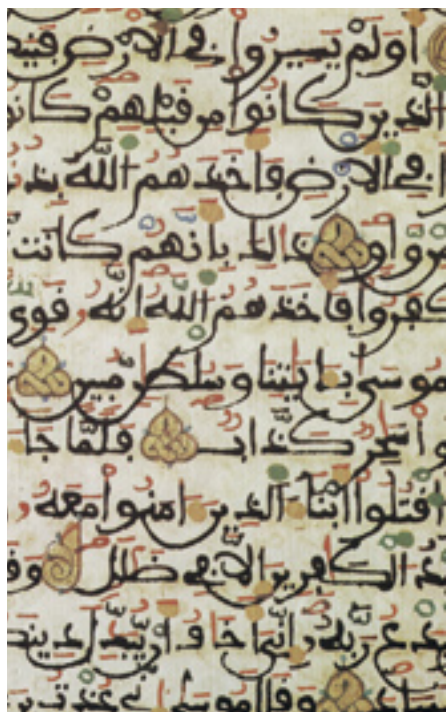 اولم يسيروا في الارض
الذين كانوا من قبلهم كانوا
في الارض فاخذهم الله
واق ذلك بانهم كانت
كفروا فاخذهم الله انه قوي
موسى بايتنا وسلطن مبين
سحر كذاب فلما جا
اقتلوا ابنا الذين امنوا معه و
الكفرين الا في ضلل وق
ربه اني اخاف ان يبدل دينكم
وقال موسى اني عذت